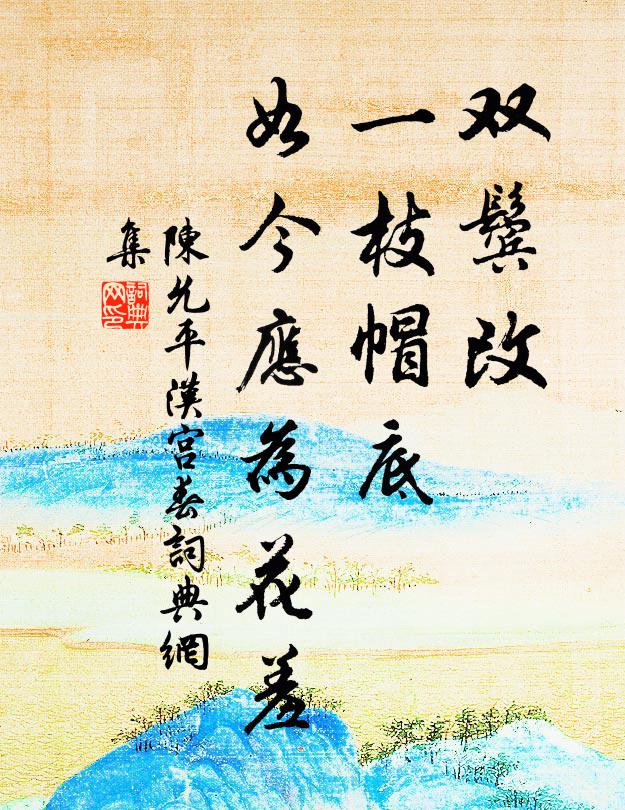 双鬓改
一枝帽底
如今應為花羞
陳允平漢宮春詞典網
集
詞典
网印